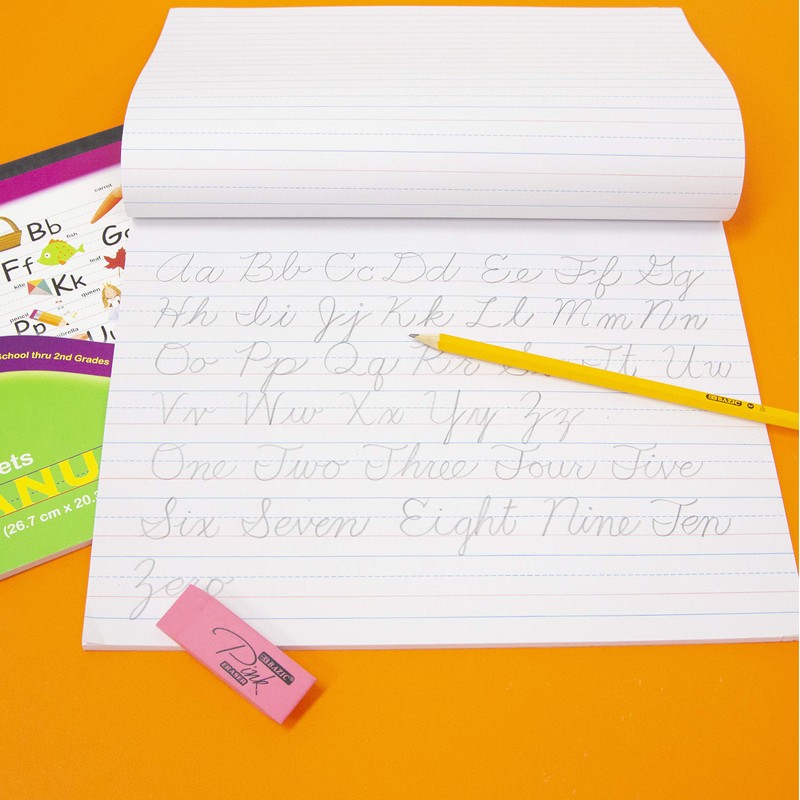 Aa Bb Cc Dd Ee Ff Gg
Hh Ii Jj Kk Ll Mm Nn
Oo Pp Qq Rr Ss Tt Uu
Vv Ww Xx Yy Zz
One Two Three Four Five
Six Seven Eight Nine Ten
Zero
BAZIC
BAZIC
Pink
ERASER
carrot
Bb
fish
Ff
leaf
kite
Kk
queen
pencil
Pp
thru 2nd Grades
(26.7 cm x 20.3